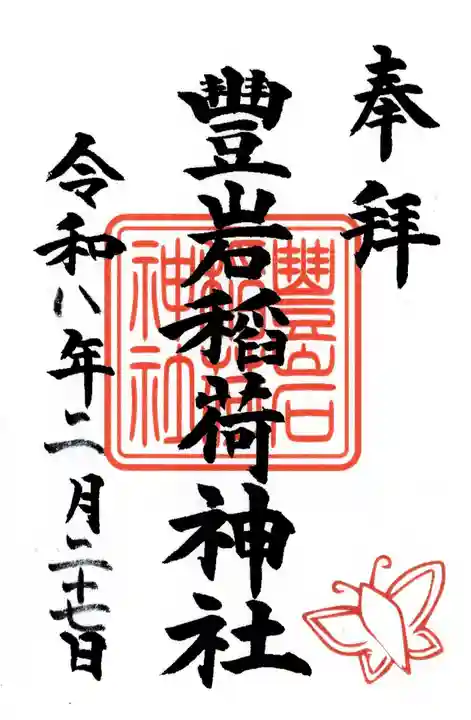 奉拝
豐岩稲荷神社
豐岩
稲荷
神社
令和八年二月二十七日